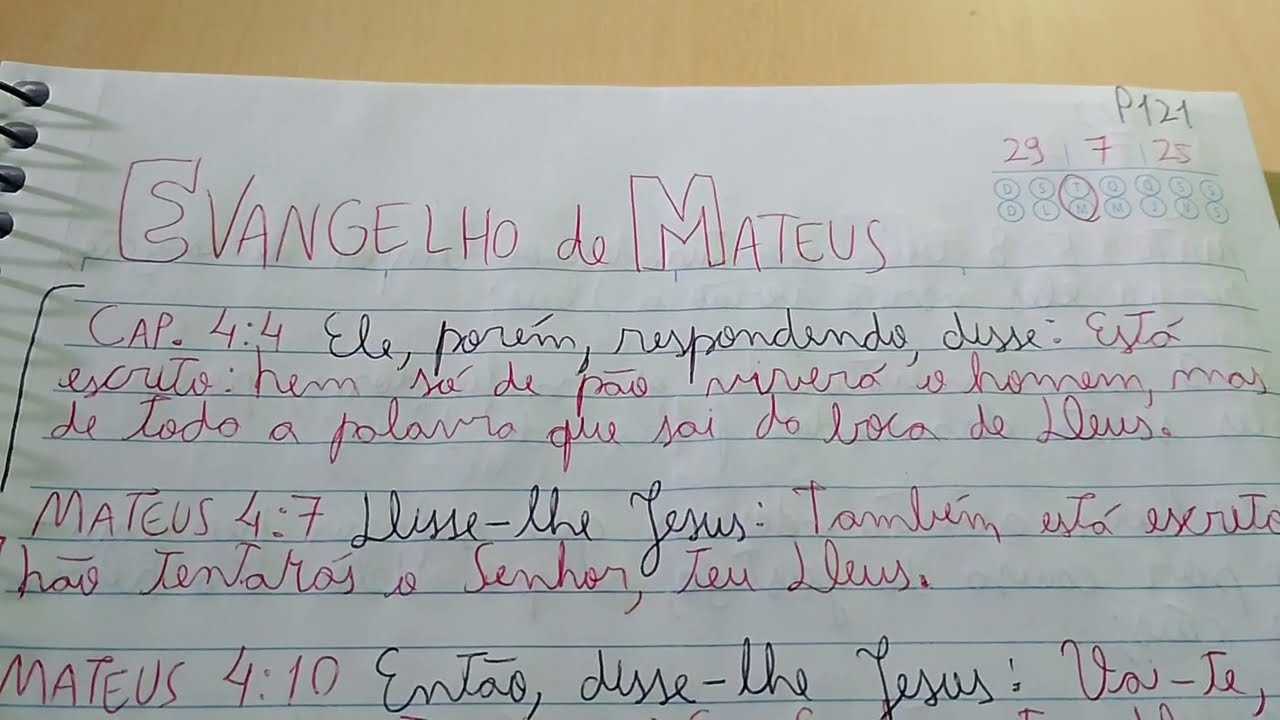 P121
29 7 25
D S T Q Q S S
D L M M J V S
EVANGELHO de MATEUS
CAP. 4:4 Ele, porém, respondendo, disse: Está
escrito: nem só de pão viverá o homem, mas
de toda a palavra que sai da boca de Deus.
MATEUS 4:7 Disse-lhe Jesus: Também está escrito
não tentarás o Senhor, teu Deus.
MATEUS 4:10 Então, disse-lhe Jesus: Vai-te,